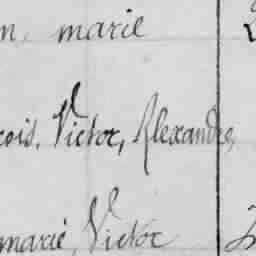 n, marie
cois, Victor, Alexandre,
marie, Victor